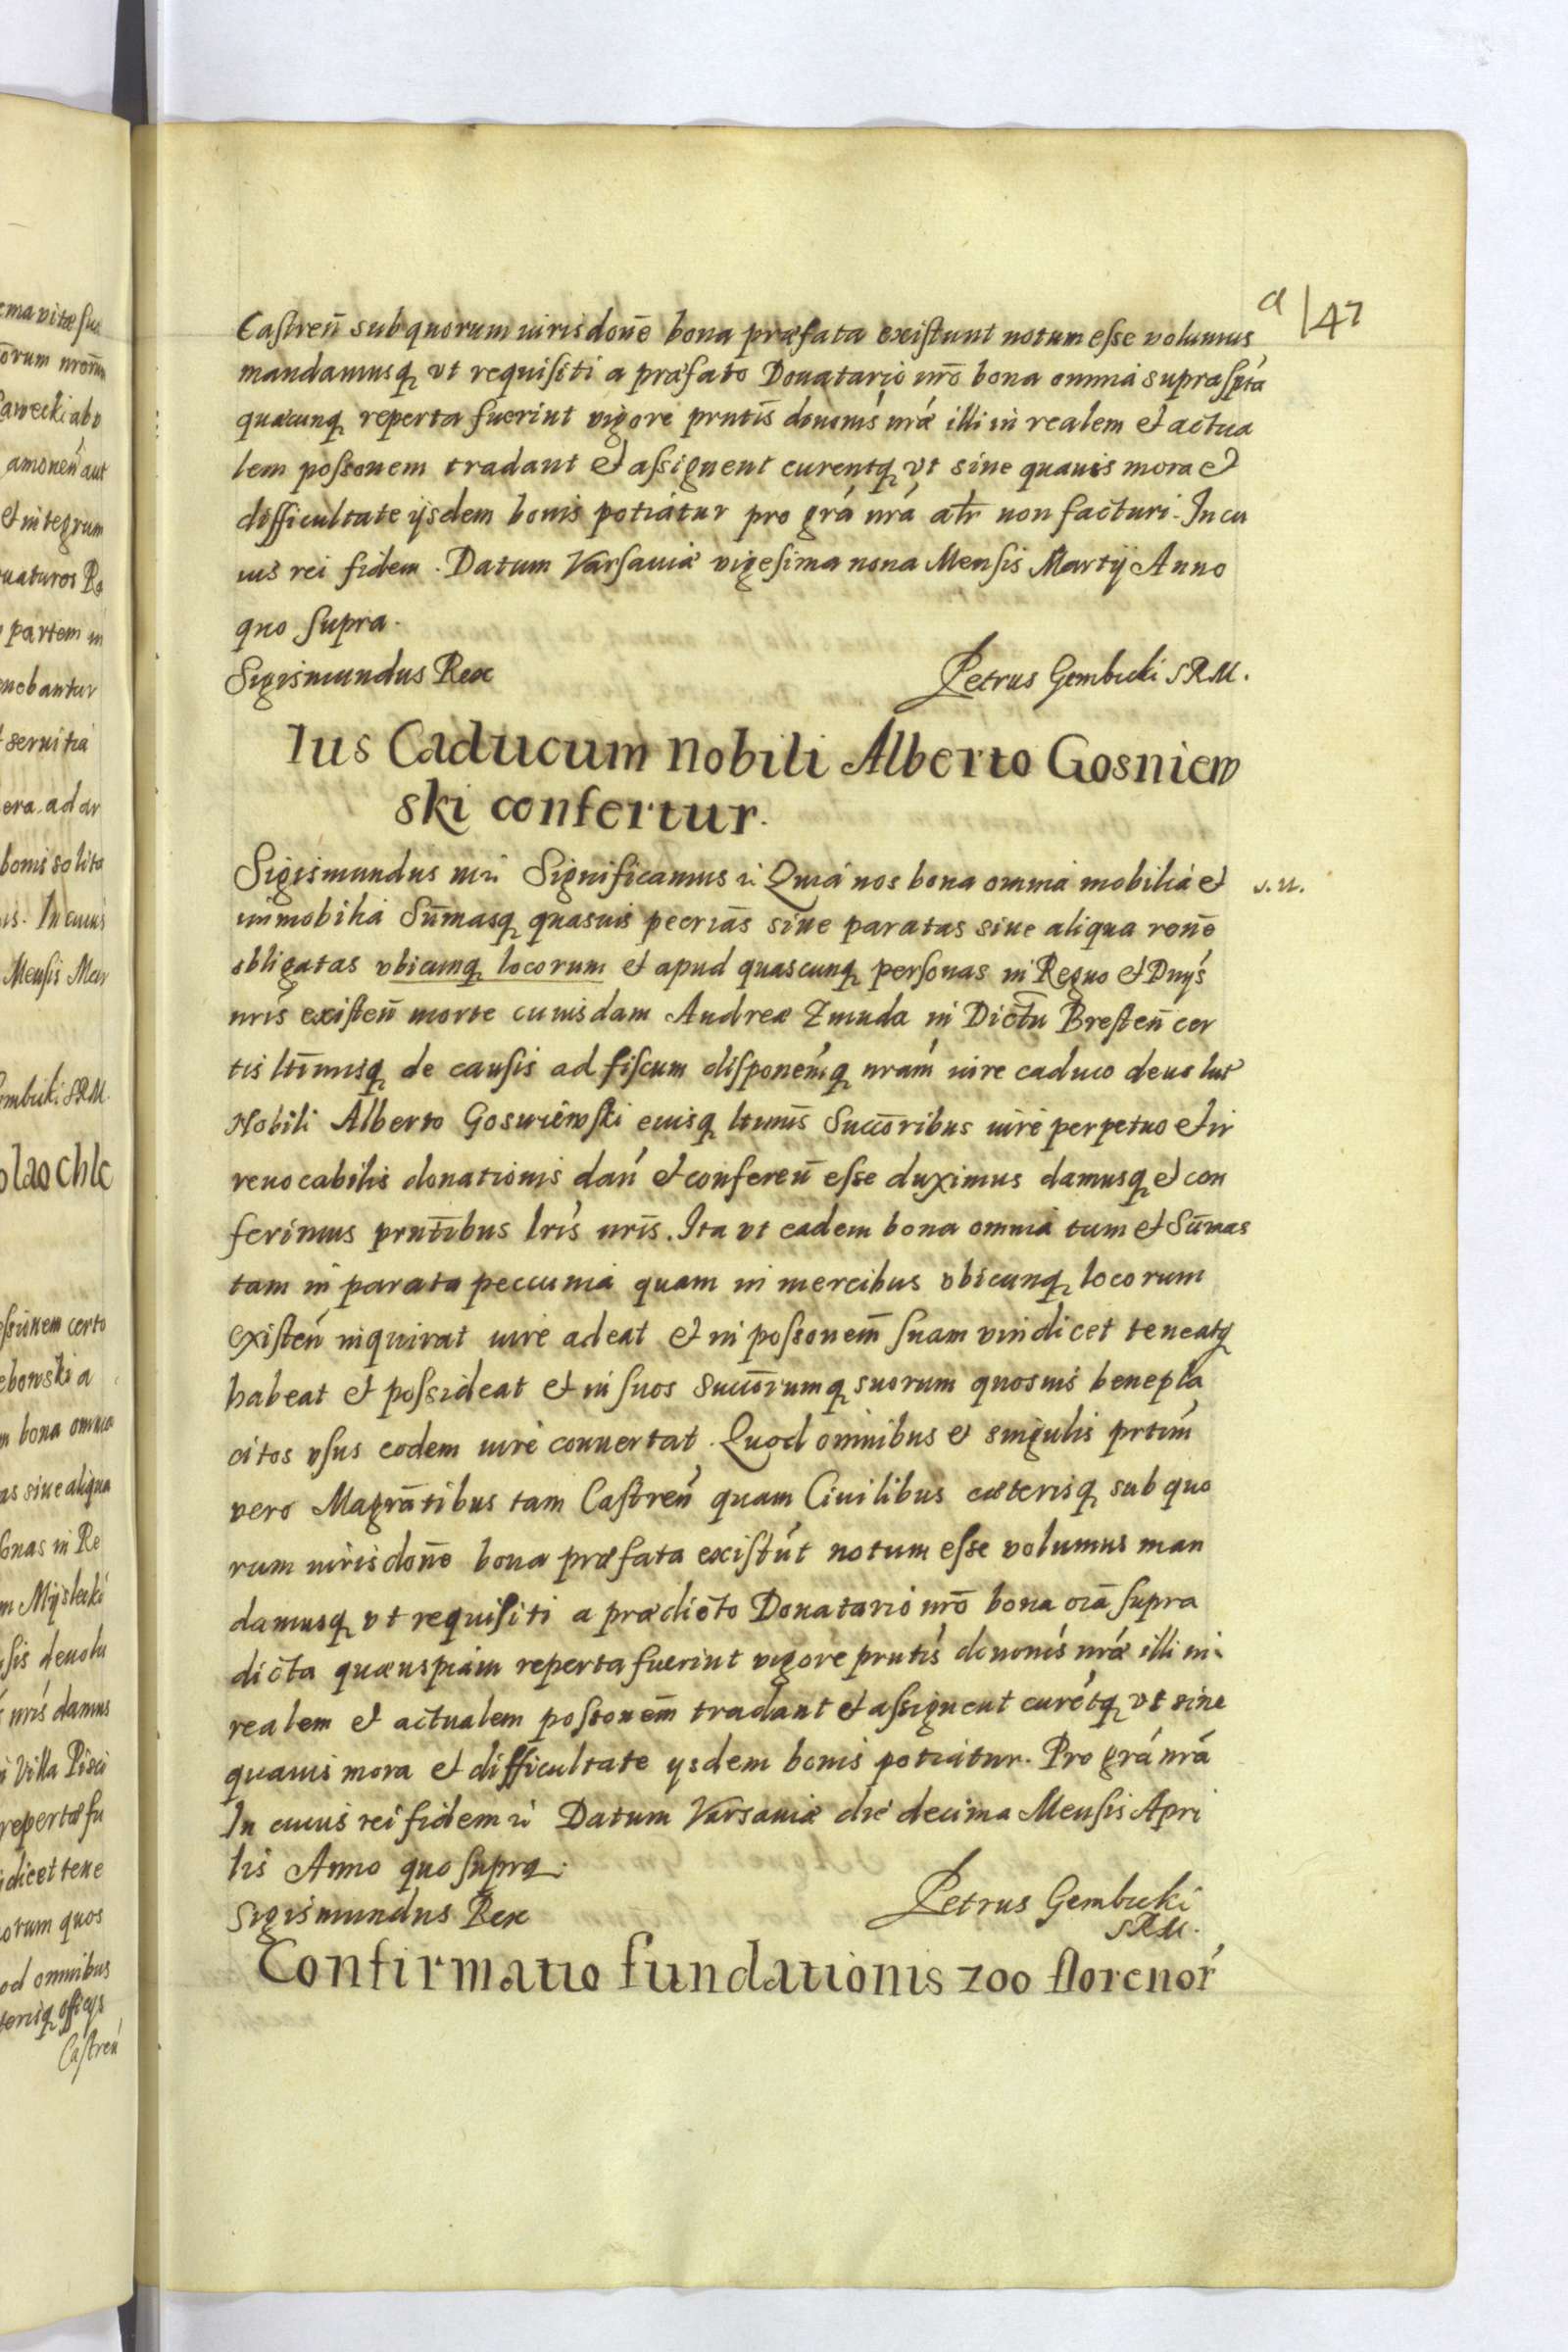 a/47
Castren̄ sub quorum iurisdōne bona præfata existunt notum esse volumus
mandamusq vt requisiti a præfato Donatario nrō bona omnia supraspta
quæcunq reperta fuerint vigore prntis dononis nræ illi in realem et actua
lem possonem tradant et assignent curentq vt sine quauis mora et
difficultate ijsdem bonis potiatur pro gra nra alr non facturi. In cu
ius rei fidem. Datum Varsauiæ vigesima nona Mensis Martij Anno
quo supra.
Sigismundus Rex Petrus Gembicki SRM.
Ius Caducum Nobili Alberto Gosniew
ski confertur.
Sigismundus Significamus Quia nos bona omnia mobilia et
immobilia Sūmasq quasuis peccrias siue paratas siue aliqua ronē
obligatas vbicunq locorum et apud quascunq personas in Regno et Dnijs
nris existen̄ morte cuiusdam Andreæ Zmuda in Dictu Bresten̄ cer
tis ltimisq de causis ad fiscum disponemq nram iure caduco deuolut
Nobili Alberto Gosniewski eiusq ltimis Succoribus iure perpetuo et ir
reuocabilis donationis dan̄ et conferen̄ esse duximus damusq et con
ferimus prntibus lris nris. Ita vt eadem bona omnia tum et Sūmas
tam in parata peccunia quam in mercibus vbicunq locorum
existen̄ inquirat iure adeat et in possonem suam vindicet teneatq
habeat et possideat et in suos Succorumq suorum quosuis benepla
citos vsus eodem iure conuertat. Quod omnibus et singulis prtim
vero Magrātibus tam Castren̄ quam Ciuilibus cæterisq sub quo
rum iurisdōne bona præfata existūt notum esse volumus man
damusq vt requisiti a prædicto Donatario nrō bona oia supra
dicta quæuspiam reperta fuerint vigore prntis dononis nræ illi in
realem et actualem possonem tradant et assignent curētq vt sine
quauis mora et difficultate ysdem bonis potiatur. Pro gra nra
In cuius rei fidem Datum Varsauiæ die decima Mensis Apri
lis Anno quo supra.
Sigismundus Rex Petrus Gembicki
SRM.
Confirmatio fundationis 200 florenor